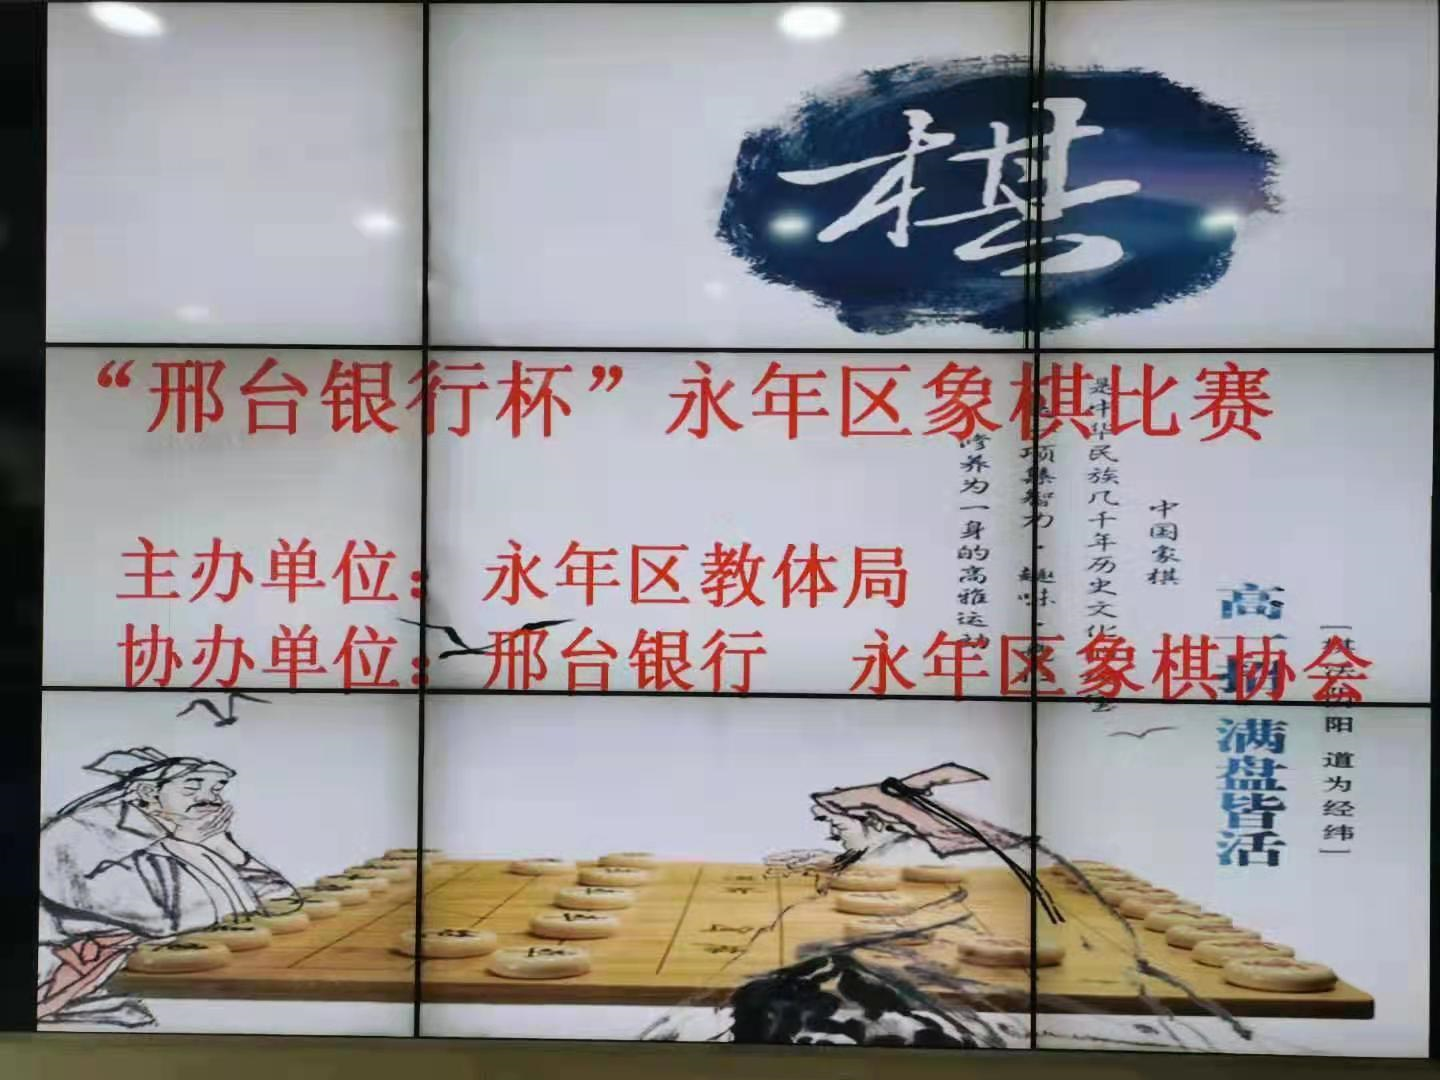 棋
“邢台银行杯”永年区象棋比赛
主办单位：永年区教体局
协办单位：邢台银行 永年区象棋协会
中国象棋
是中华民族几千年历史文化
项集智力·趣味·
修养为一身的高雅运动
高一招 满盘皆活
阳 道为经纬]